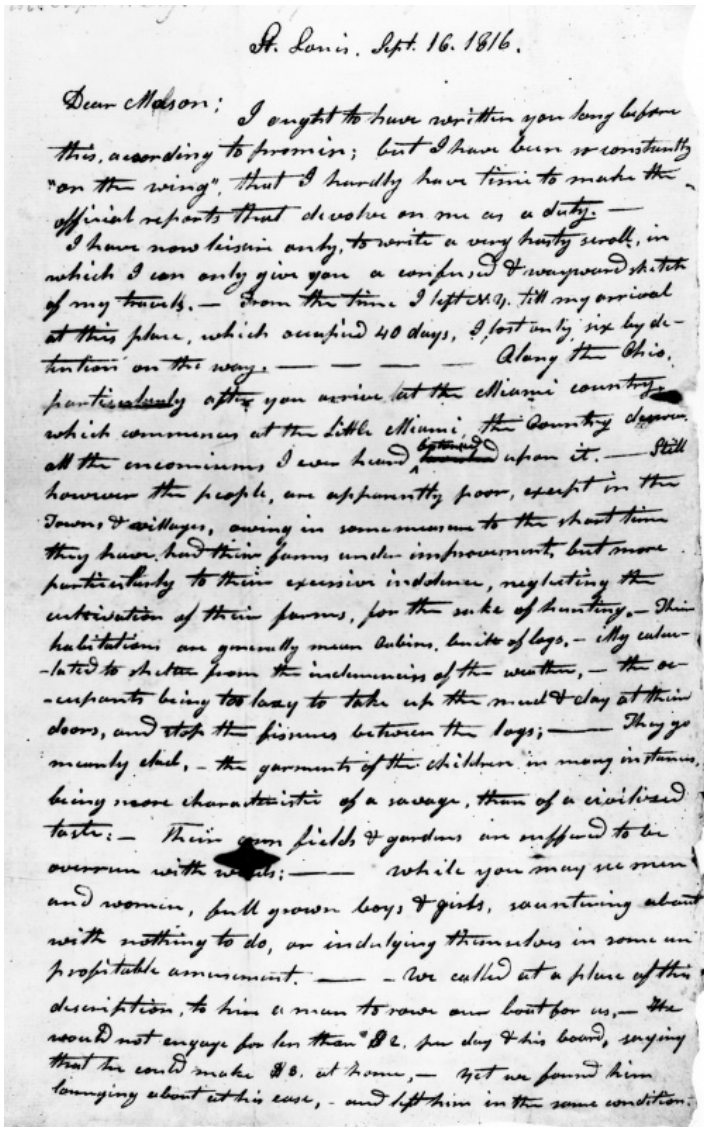 St. Louis. Sept. 16. 1816.
Dear Mason;
I ought to have written you long before
this, according to promise; but I have been so constantly
"on the wing", that I hardly have time to make the
official reports that devolve on me as a duty. —
I have now leisure only, to write a very hasty scroll, in
which I can only give you a confused & wayward sketch
of my travels. — From the time I left N.Y. till my arrival
at this place, which occupied 40 days, I lost only six by de-
tention on the way. — — — — Along the Ohio,
particularly after you arrive at the Miami country,
which commences at the Little Miami, the Country deserves
all the encomiums I ever heard bestowed upon it. — Still
however the people, are apparently poor, except in the
Towns & villages, owing in some measure to the short time
they have had their farms under improvement, but more
particularly to their excessive indolence, neglecting the
cultivation of their farms, for the sake of hunting. — Their
habitations are generally mean Cabins, built of logs, — illy calcu-
-lated to shelter from the inclemencies of the weather, — the oc-
-cupants being too lazy to take up the mud & clay at their
doors, and stop the fissures between the logs; — They go
meanly clad, — the garments of the children in many instances,
being more characteristic of a savage, than of a civilized
taste: — Their own fields & gardens are suffered to be
overrun with weeds; — while you may see men
and women, full grown boys & girls, sauntering about
with nothing to do, or indulging themselves in some un
profitable amusement. — — We called at a place of this
description, to hire a man to row our boat for us, — He
would not engage for less than $2. per day & his board, saying
that he could make $3. at home, — yet we found him
lounging about at his ease, — and left him in the same condition.